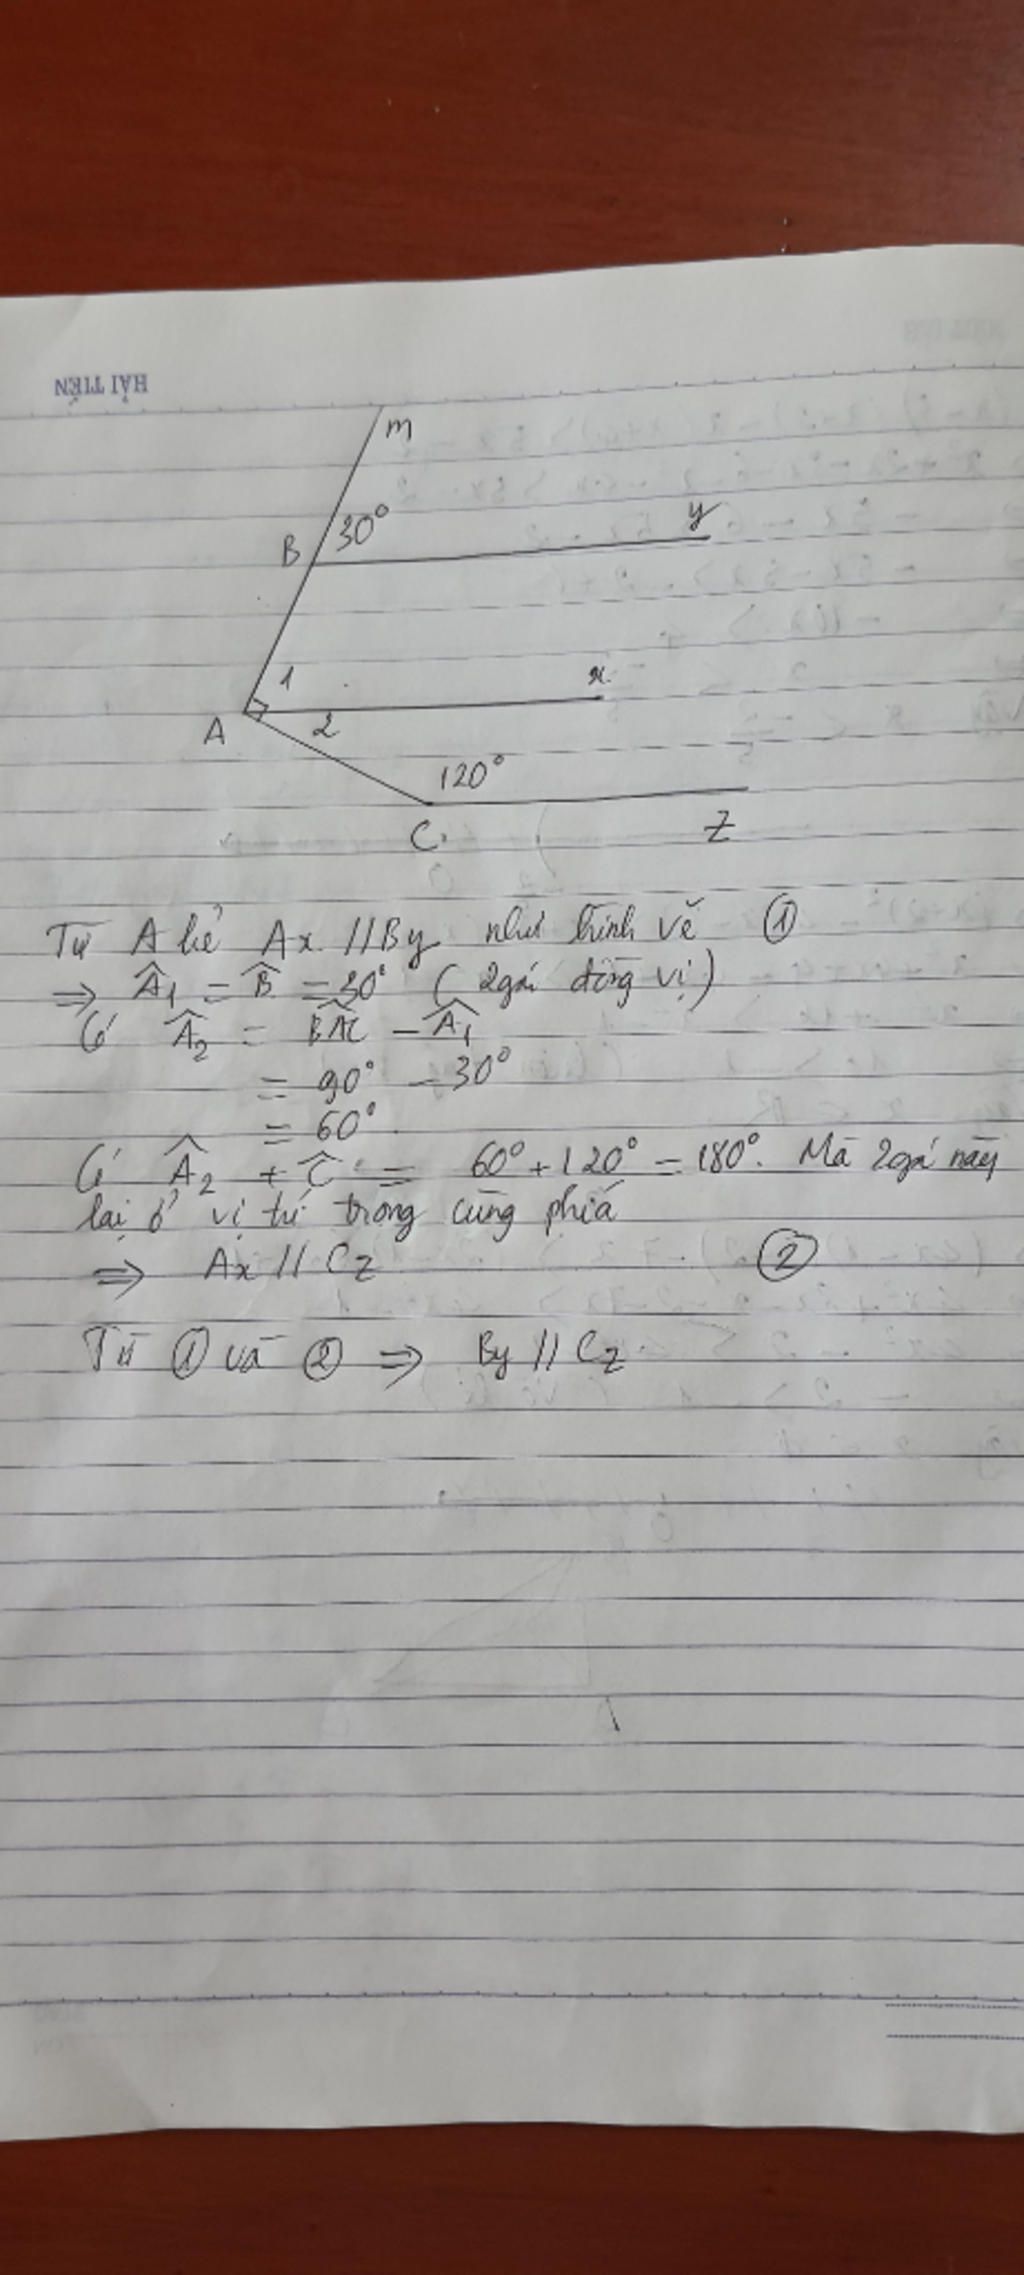 HẢI TIẾN
m
30°
B
y
1
x
A
2
120°
C
z
Từ A kẻ Ax // By như hình vẽ ①
⇒ Â₁ = B̂ = 30° ( 2 góc đồng vị )
Có Â₂ = BAC - Â₁
= 90° - 30°
= 60°
Có Â₂ + Ĉ = 60° + 120° = 180°. Mà 2 góc này
lại ở vị trí trong cùng phía
⇒ Ax // Cz ②
Từ ① và ② ⇒ By // Cz